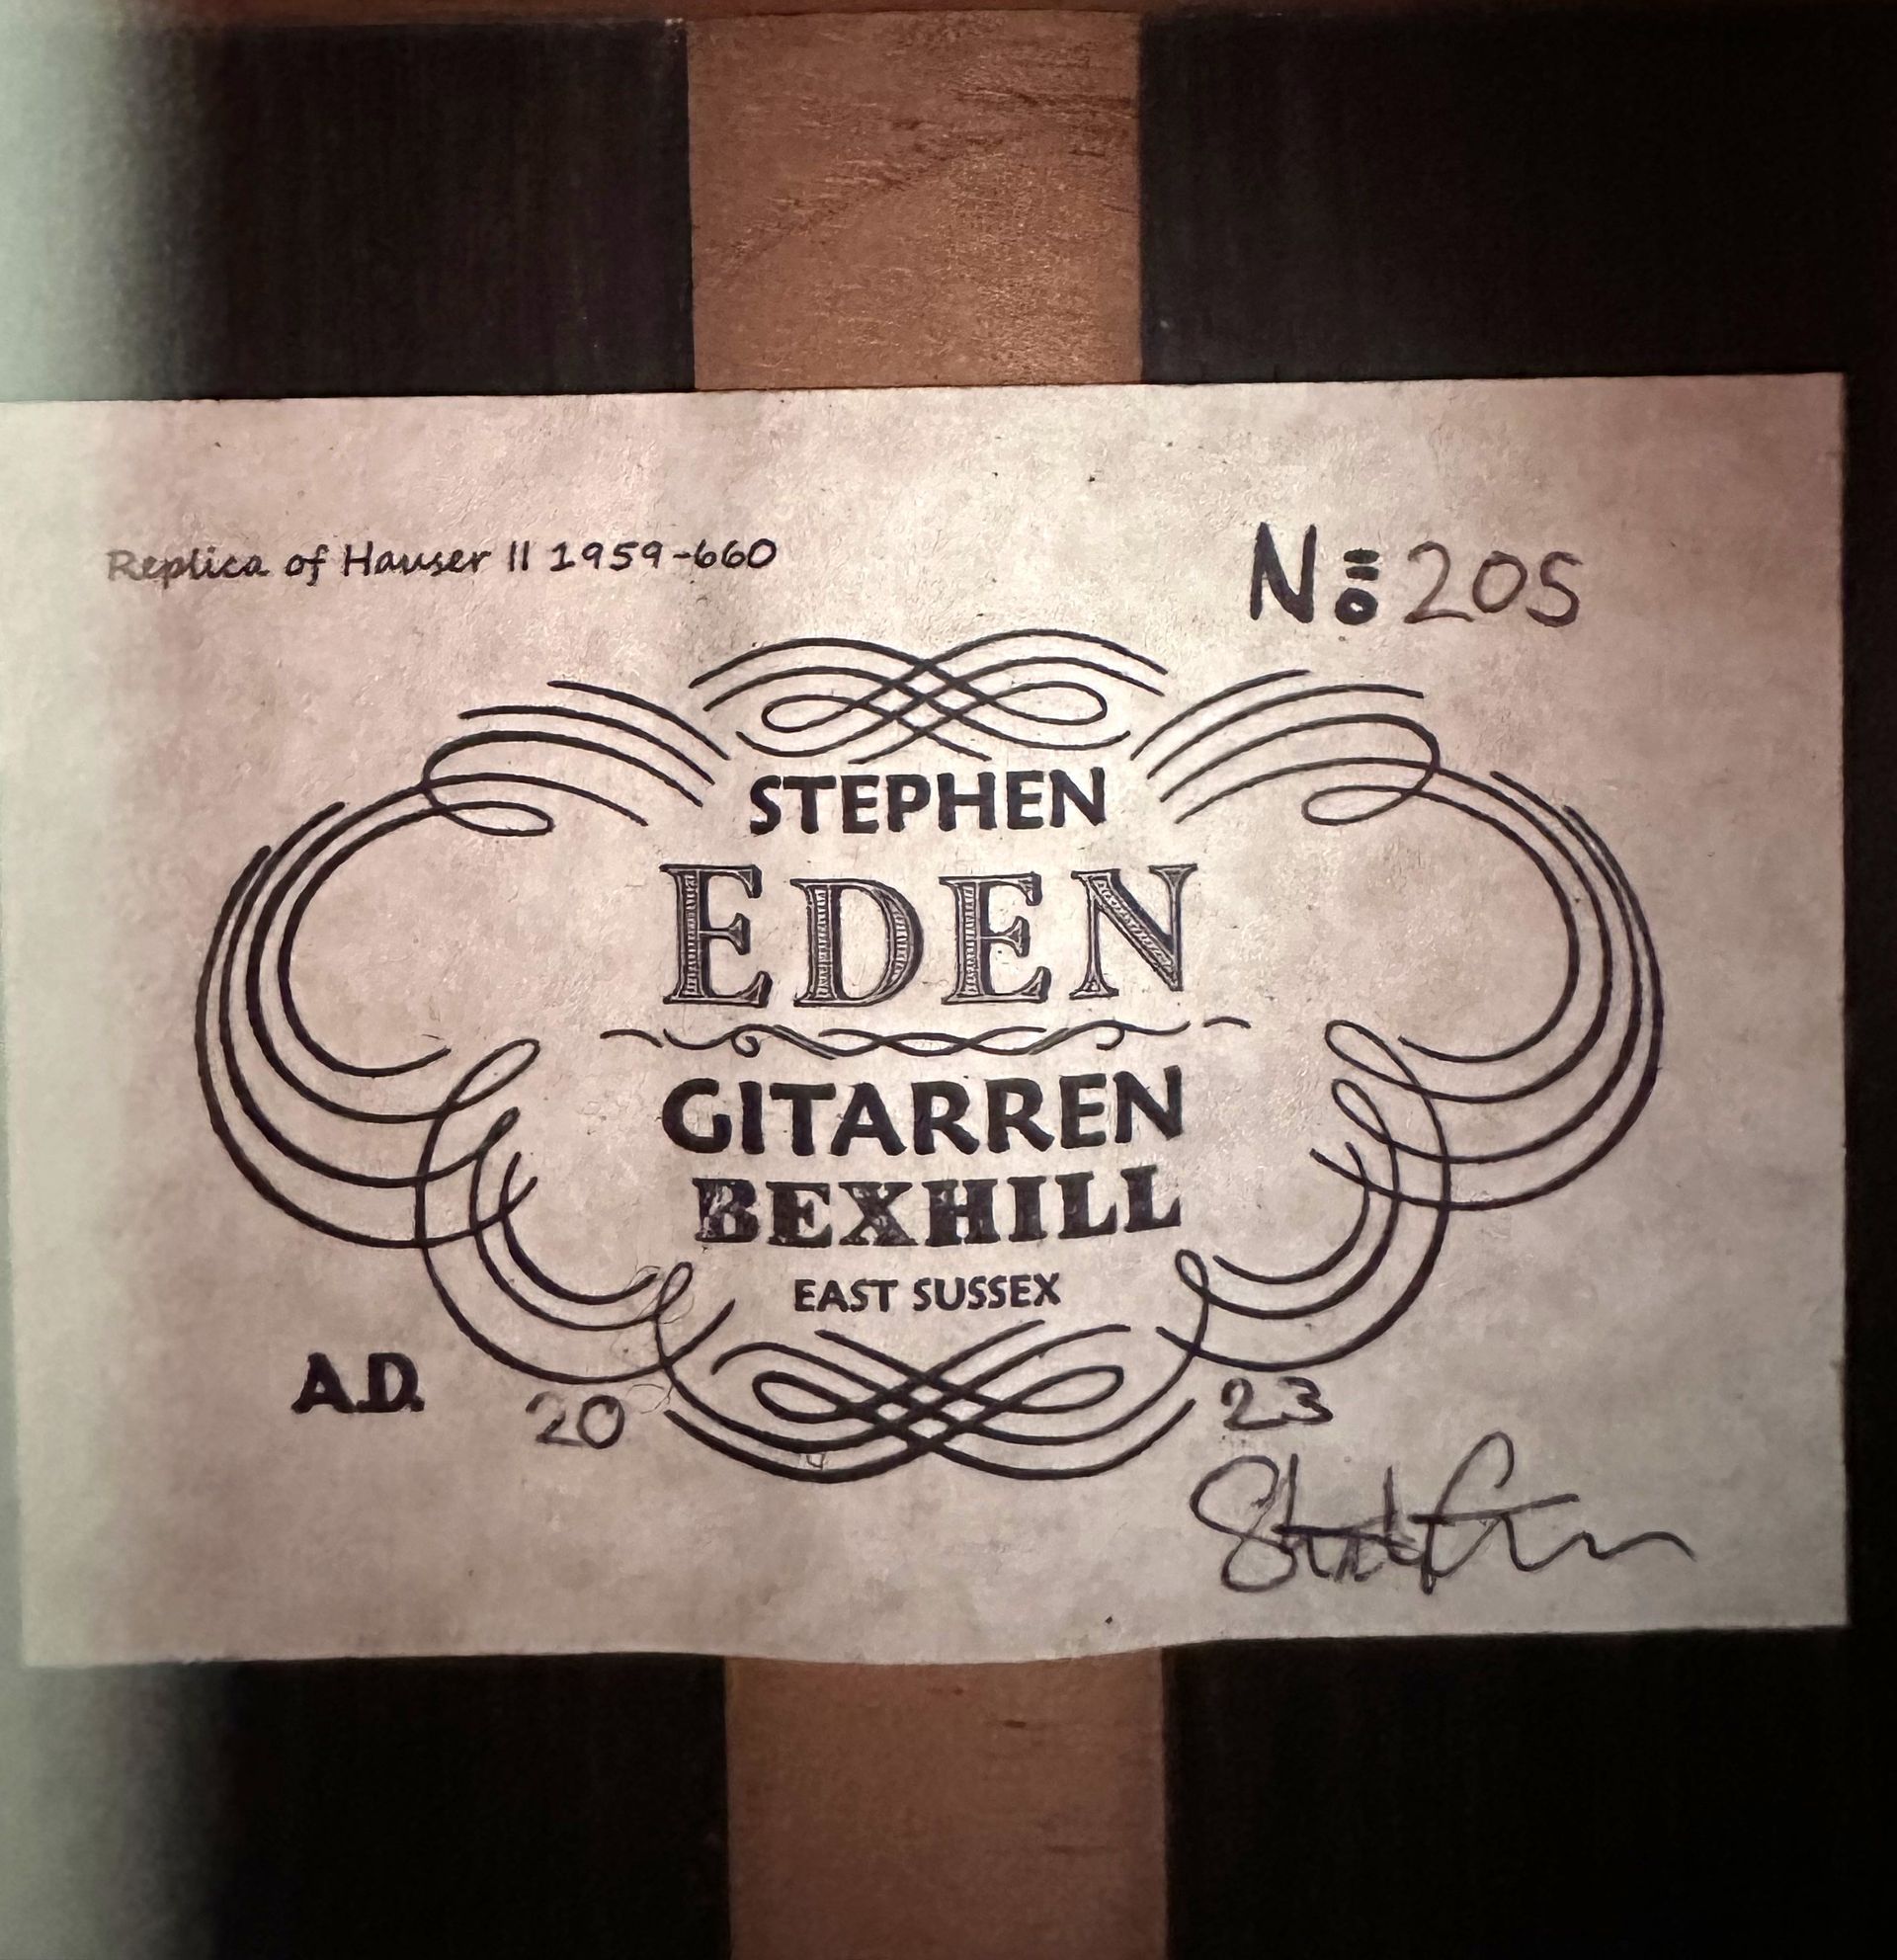 Replica of Hauser II 1959-660
Nº 205
STEPHEN
EDEN
GITARREN
BEXHILL
EAST SUSSEX
A.D. 20 23